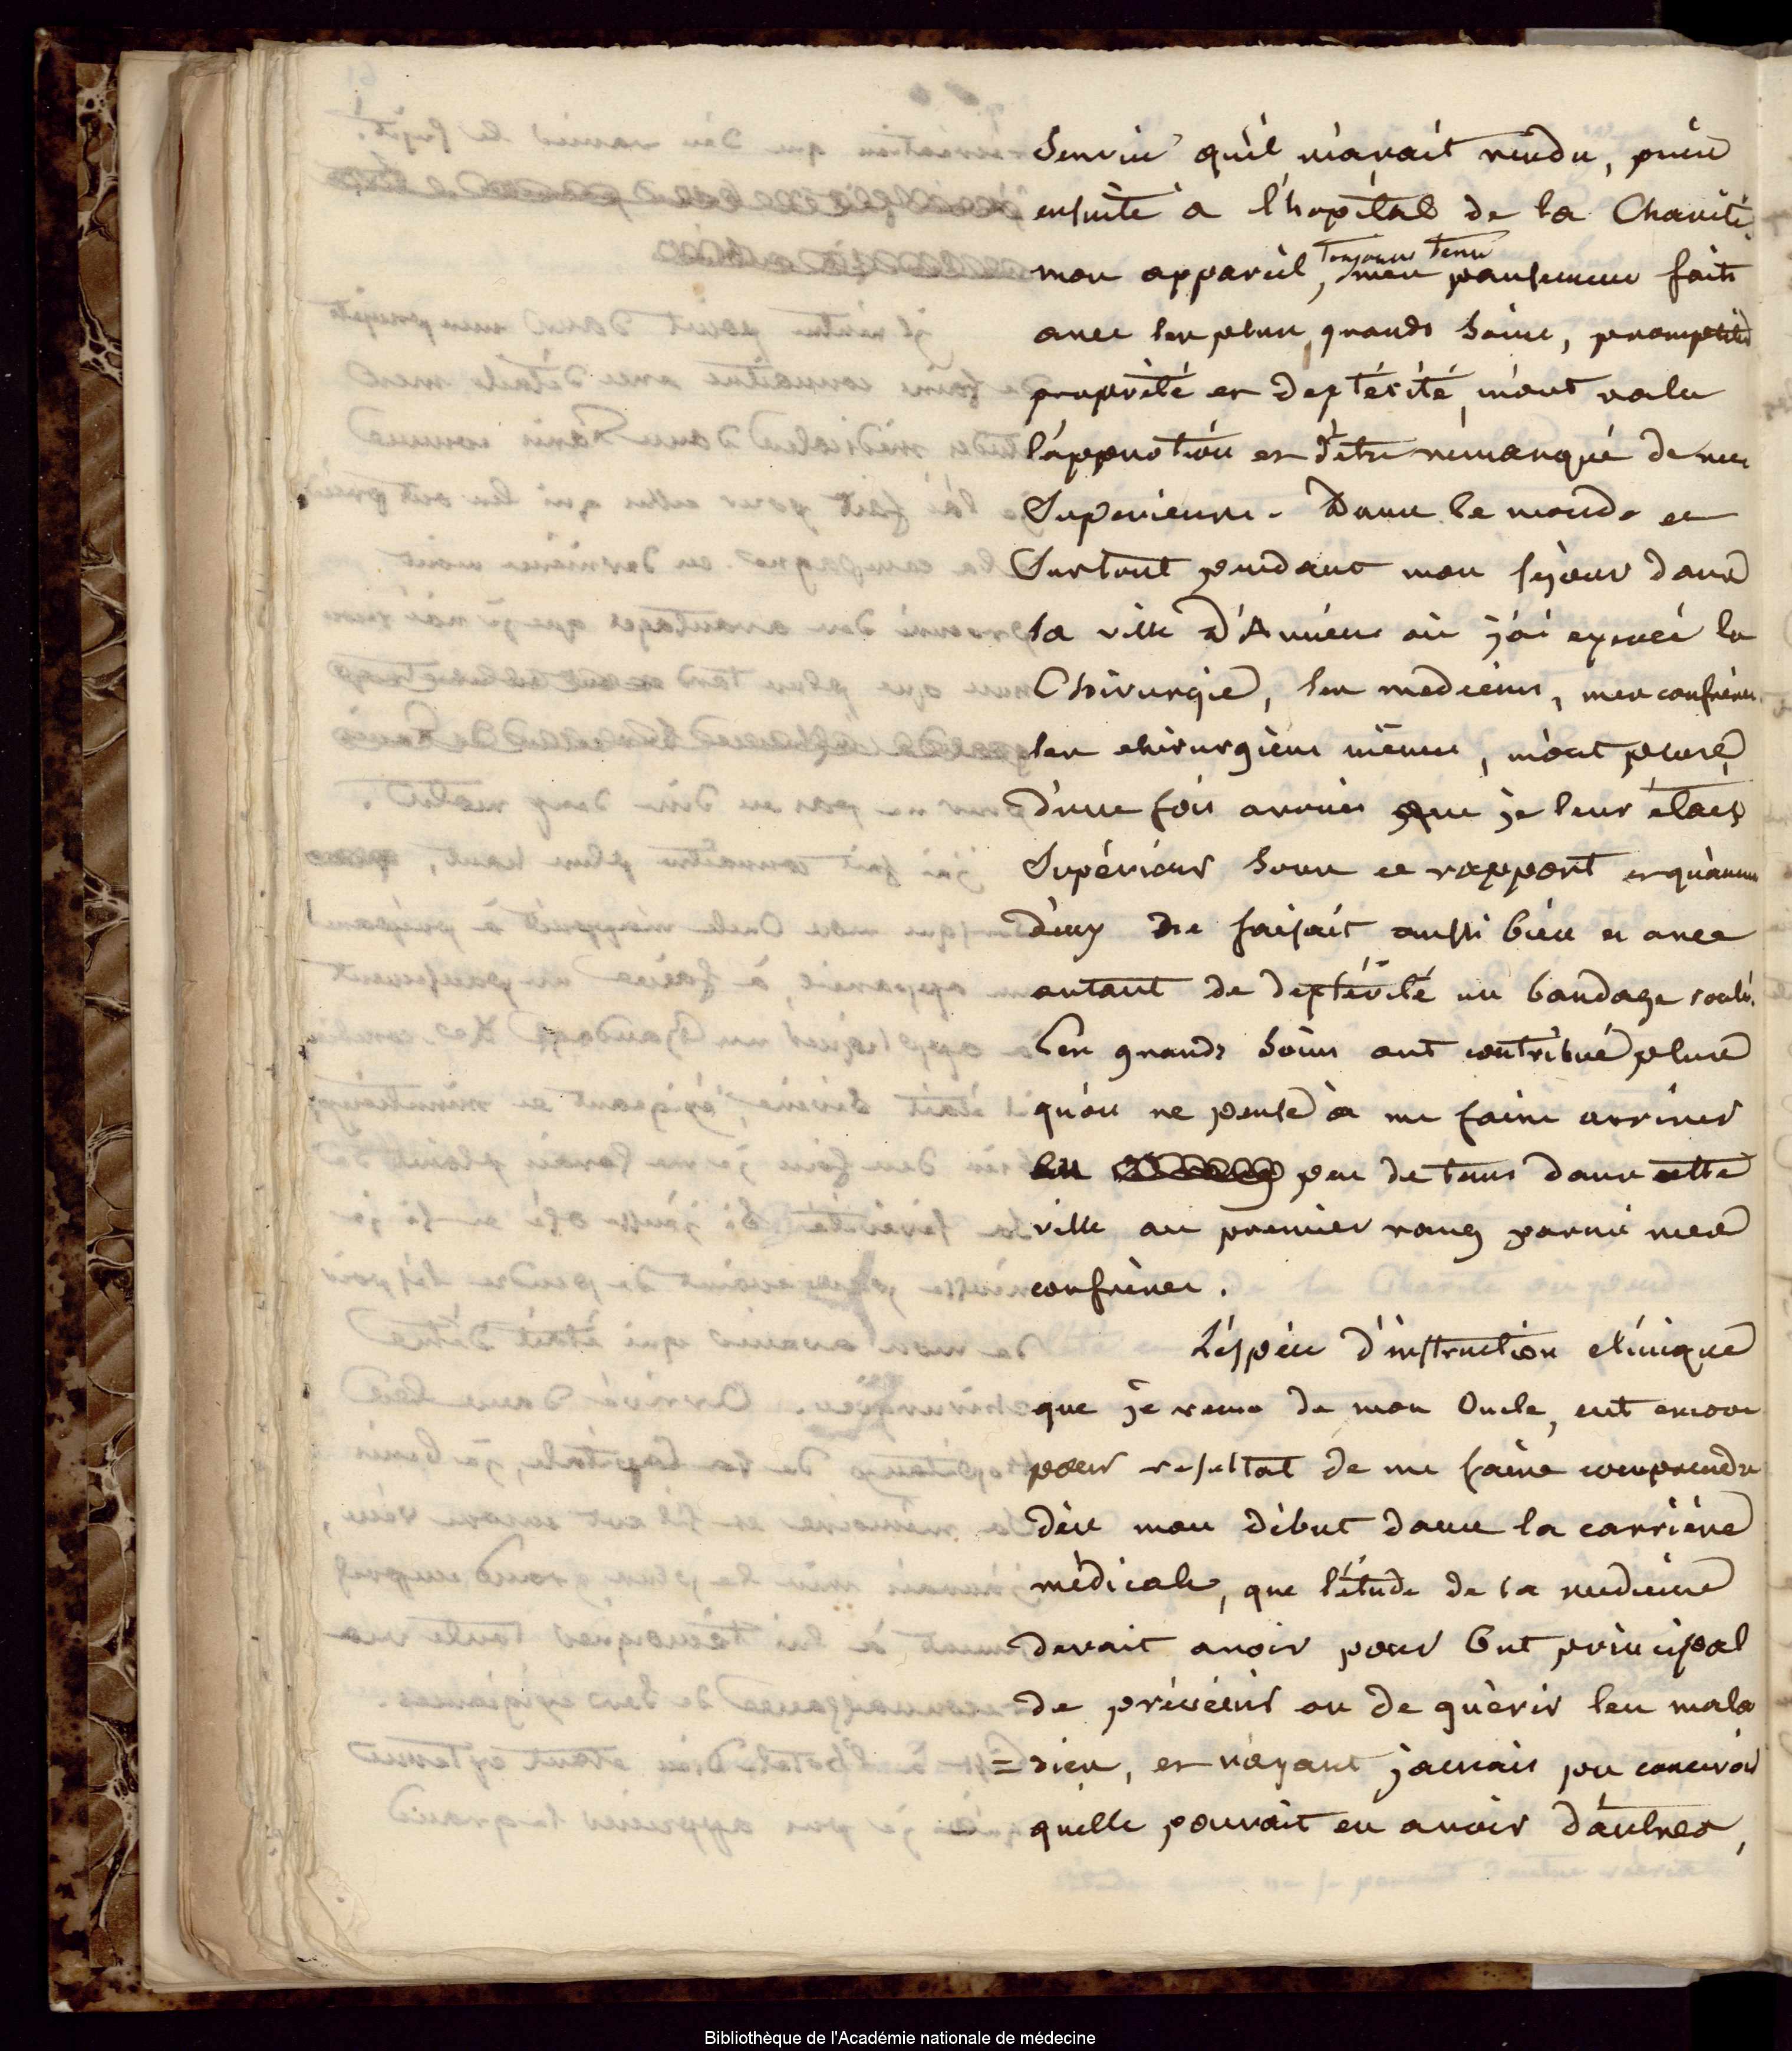 Service qu'il m'avait rendu, puis
ensuite à l'hopital de la Charité.
mon appareil, toujours tenu mes pansemens faits
avec les plus grands soins, promptitude
propriété et dextérité, m'ont valu
l'approtion et d'être rémarqué de mes
Superieurs. Dans le monde et
Surtout pendant mon sejour dans
la ville d'Amiens où j'ai exercé la
Chirurgie, les medecins, mes confreres
les chirurgiens mêmes, m'ont
d'une fois avouer que je leur étais
Supérieur sous ce rapport et qu'aucun
d'eux ne faisait aussi bien et avec
autant de dextérité un bandage roulé.
Ces grands soins ont contribué plus
qu'on ne pense à me faire arriver
en peu de tems dans cette
ville au premier rang parmi mes
confrères.
L'espèce d'instruction clinique
que je reçus de mon Oncle, eut encore
pour resultat de me faire comprendre
dès mon début dans la carrière
médicale, que l'étude de la medecine
devait avoir pour but principal
de prévenir ou de guèrir les mala
=dies, et n'ayant jamais pu concevoir
quelle pouvait en avoir d'autres,
Bibliothèque de l'Académie nationale de médecine